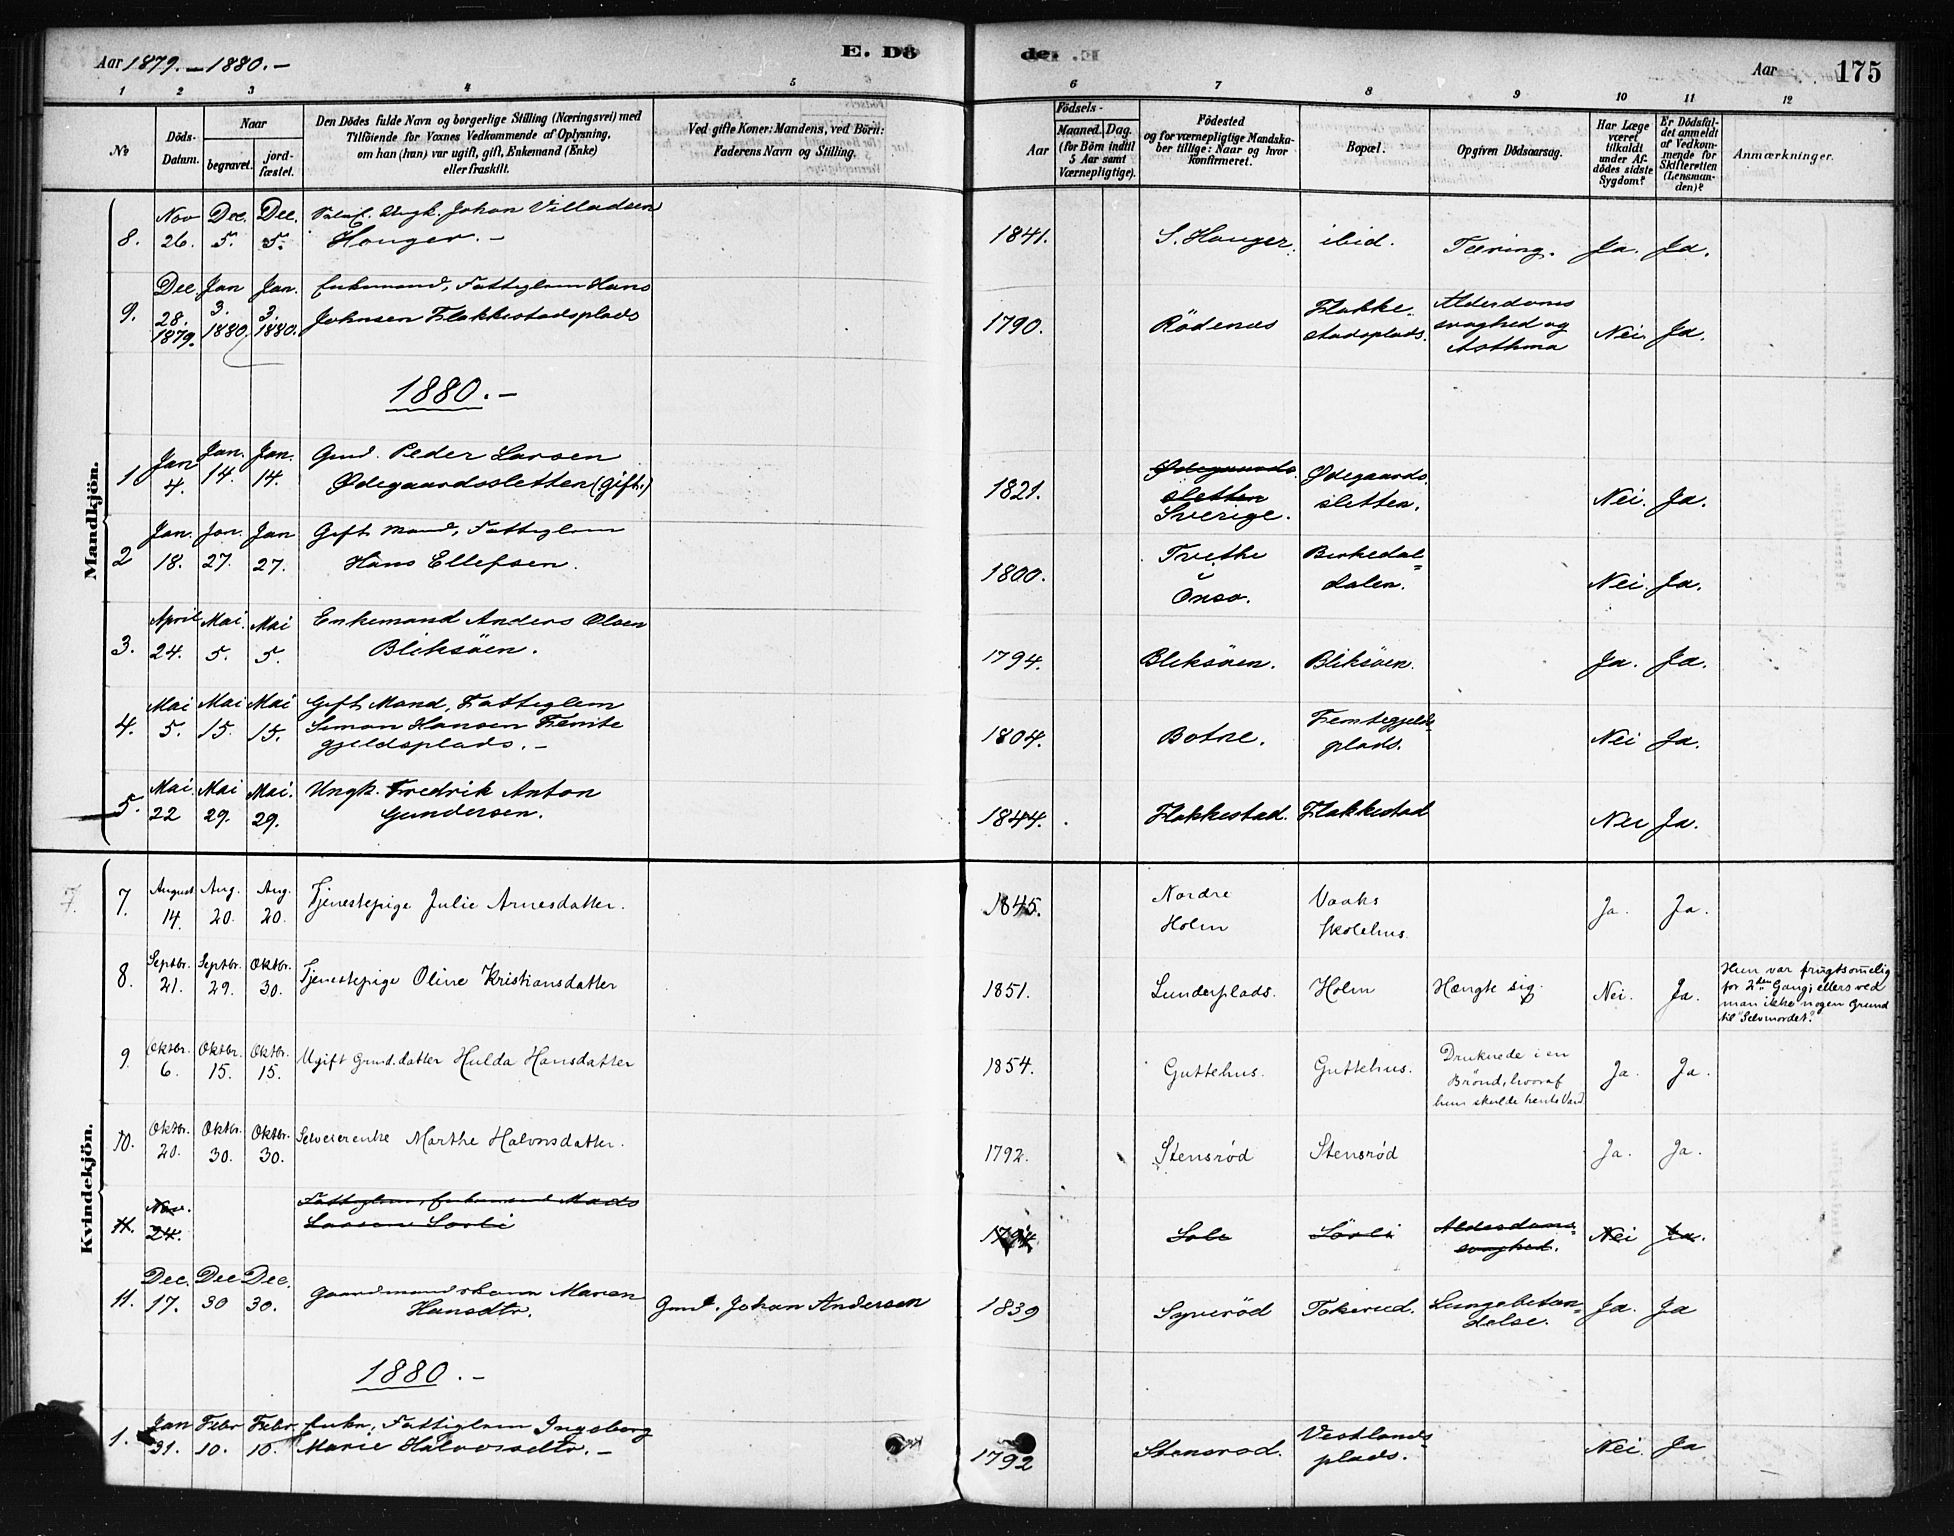 Aar 1879.-1880.- E. Dö de. Aar 175
1 2 3 4 5 6 7 8 9 10 11 12
No
Döds-
Datum.
Naar
begravet.
jord-
fæstet.
Den Dödes fulde Navn og borgerlige Stilling (Næringsvei) med
Tilföiende for Voxnes Vedkommende af Oplysning,
om han (hun) var ugift, gift, Enkemand (Enke)
eller fraskilt.
Ved gifte Koner: Mandens, ved Börn:
Faderens Navn og Stilling.
Födsels-
Aar
Maaned. Dag.
(for Börn indtil
5 Aar samt
Værnepligtige).
Födested
og for værnepligtige Mandska-
ber tillige: Naar og hvor
konfirmeret.
Bopæl.
Opgiven Dödsaarsag.
Har Læge
været
tilkaldt
under Af-
dödes sidste
Sygdom?
Er Dödsfal-
det anmeldt
af Vedkom-
mende for
Skifteretten
(Lensman-
den)?
Anmærkninger.
Mandkjön.
8. Nov 26. Dec. 5. Dec. 5. Ungk. Johan Villadsen
Hauger. - 1841. S. Hauger. ibid. Tæring. Ja. Ja.
9. Dec. 28. 1879. Jan 3. 1880 Jan. 3. 1880. Enkemand, Fattiglem Hans
Johnsen Flakkestadsplads 1790. Rödenæs Flakke-
stadsplads. Alderdoms
svaghed og
Asthma Nei. Ja.
1880. -
1 Jan 4. Jan. 14. Jan. 14. Gmd. Peder Larsen
Ødegaardssletten (Gift.) 1821. Ødegaards
sletten
Sverige. Ødegaards
sletten. Nei. Ja.
2 Jan. 18. Jan. 27. Jan 27. Gift Mand, Fattiglem
Hans Ellefsen. 1800. Tvethe
Önsø. Birkedal=
dalen. Nei. Ja.
3. April 24. Mai. 5. Mai 5. Enkemand Anders Olsen
Bliksöen. 1794. Bliksöen. Bliksöen. Ja. Ja.
4. Mai 5. Mai 15. Mai 15. Gift Mand, Fattiglem
Simon Hansen Femte
gjeldsplads. - 1804. Botne. Femtegjelds
plads. Nei Ja.
5. Mai. 22 Mai 29. Mai. 29. Ungk. Fredrik Anton
Gundersen. 1844. Flakkestad. Flakkestad Nei Ja.
Kvindekjön.
7.
7. August 14. Aug. 20. Aug. 20. Tjenestepige Julie Arnesdatter. 1845. Nordre
Holm Vaaks
Skolehus. Ja. Ja.
8. Septbr. 21. Septbr. 29. Oktbr. 30. Tjenestepige Oline Kristiansdatter 1851. Lunderplads. Holm Hængte sig. Nei. Ja. Hun var frugtsommelig
for 2den Gang; ellers ved
man ikke nogen Grund
til Selvmordet.
9 Oktbr. 6. Oktbr. 15. Oktbr. 15. Ugift Grmd. datter Hulda Hansdatter 1854. Guttehus. Guttehus. Druknede i en
Brönd, hvoraf
hun skulde hente Vand. Ja. Ja.
10. Oktbr. 20. Oktbr. 30. Oktbr. 30. Selveierenke Marthe Halvorsdatter. 1792. Stensrød Stensrød Ja. Ja.
11. Nov. 24. Fattiglem, Enkemand Mads
Larsen Sørli 1794 Sörli Alderdoms-
svaghed. Nei Ja.
11. Dec. 17. Dec 30 Dec. 30. Gaardmandskone Maren
Hansdtr. Gmd. Johan Andersen 1839 Syveröd Tokerud. Lungebetæn=
delse. Ja. Ja
1880. -
1. Jan 31. Febr 10. Febr 10. Enke, Fattiglem Ingeborg
Marie Halvorsdtr. - 1792 Stensrod. Vestlands
plads. Nei. Ja